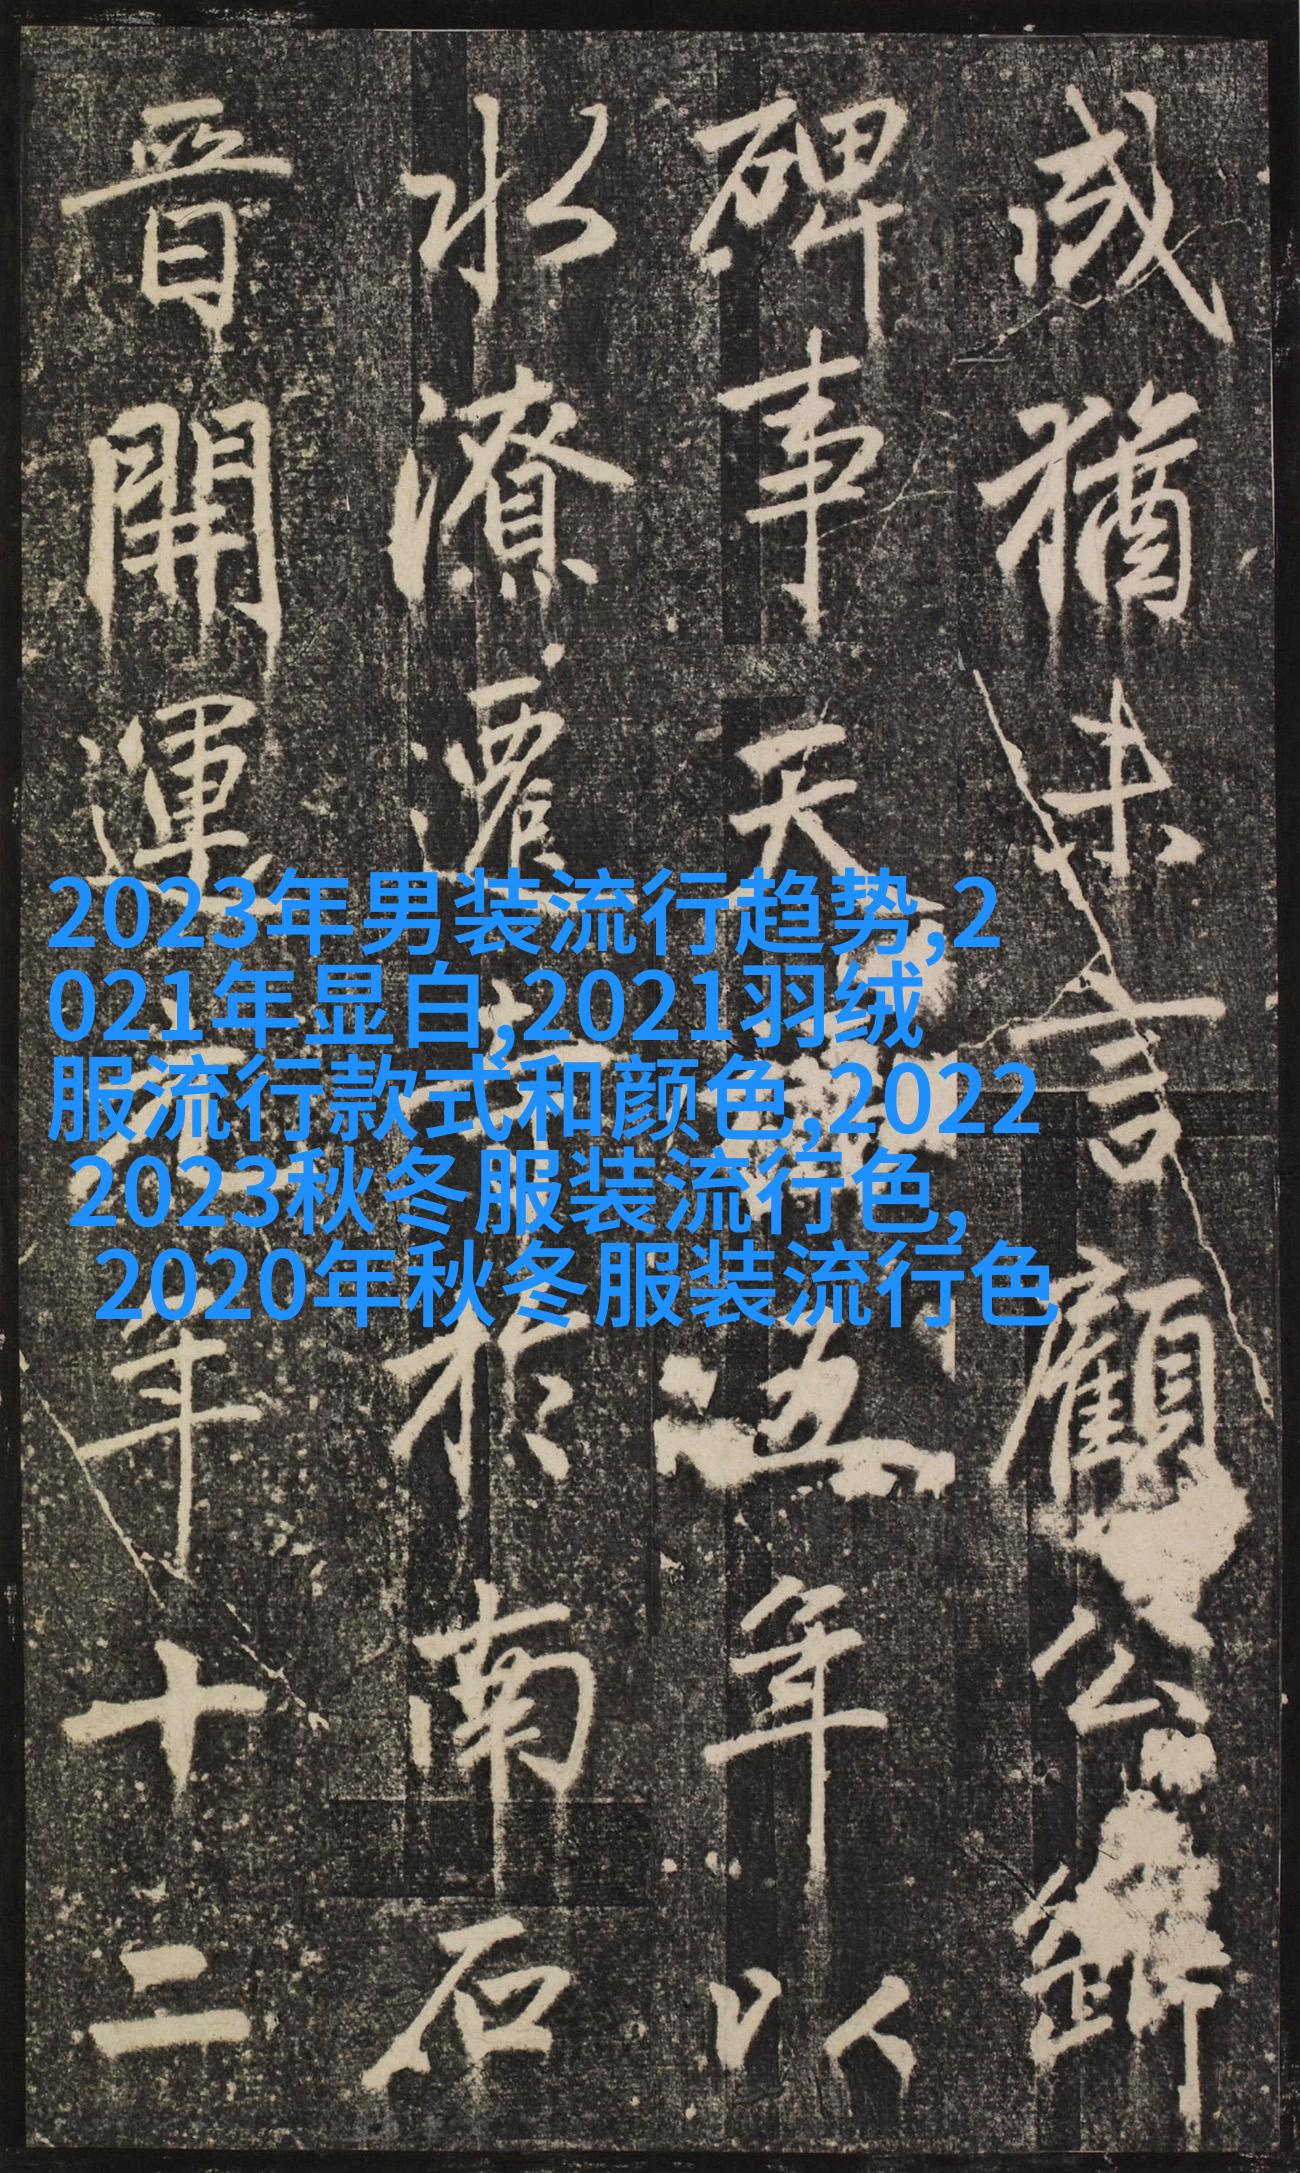 猶未言顧公
碑事天五年以
水潦遷於南石
晉開運年十二
2023年男装流行趋势,2
021年显白,2021羽绒
服流行款式和颜色,2022
2023秋冬服装流行色,
2020年秋冬服装流行色